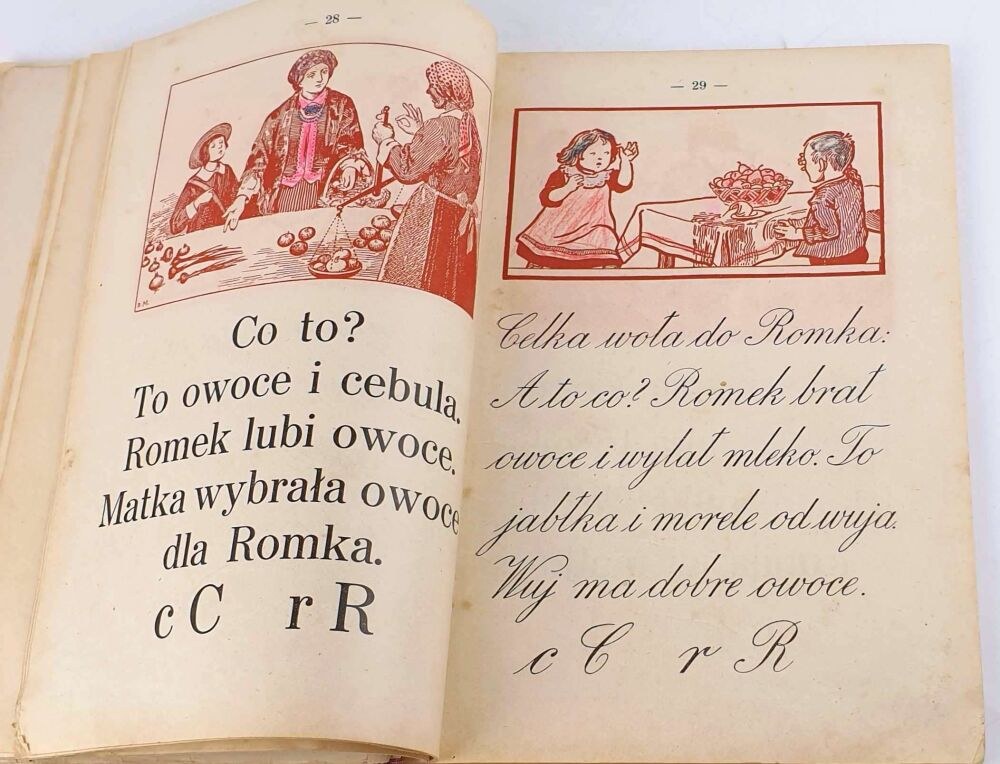 — 28 —
Co to?
To owoce i cebula.
Romek lubi owoce.
Matka wybrała owoce
dla Romka.
c C r R
— 29 —
Celka woła do Romka:
A to co? Romek brał
owoce i wylał mleko. To
jabłka i morele od wuja.
Wuj ma dobre owoce.
c C r R